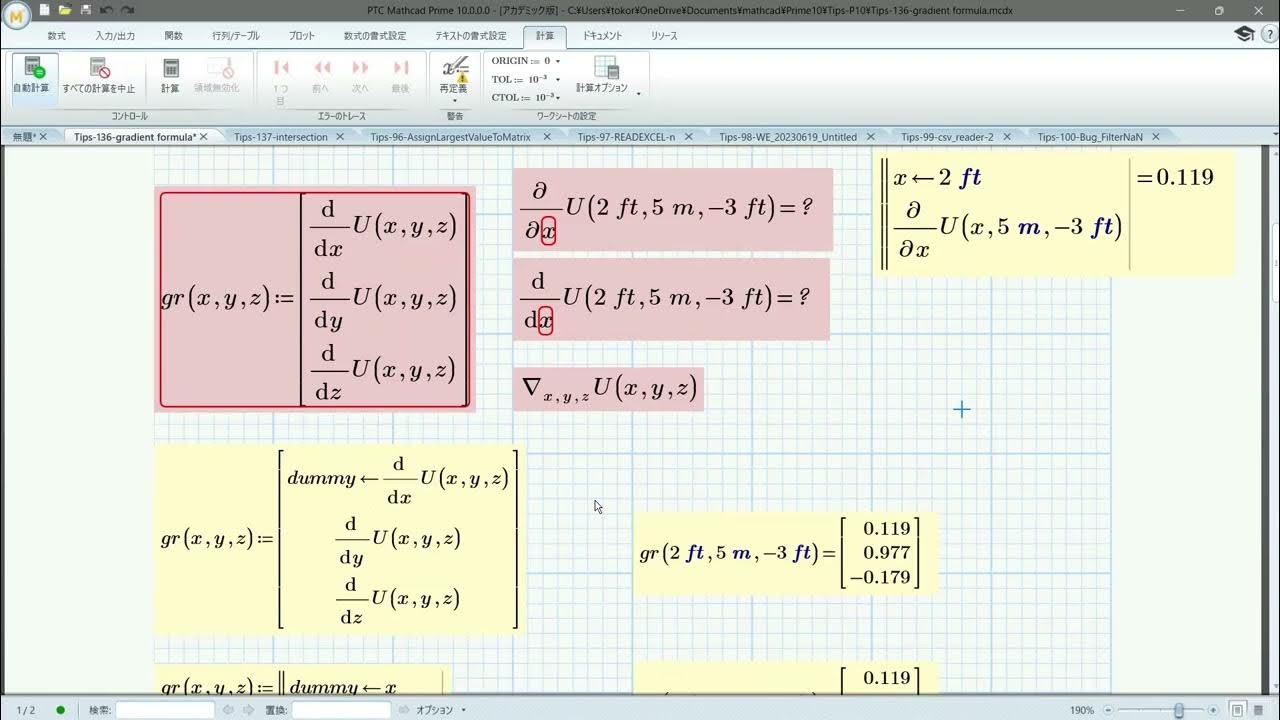 PTC Mathcad Prime 10.0.0.0 - [アカデミック版] - C:¥Users¥tokor¥OneDrive¥Documents¥mathcad¥Prime10¥Tips-P10¥Tips-136-gradient formula.mcdx
数式 入力/出力 関数 行列/テーブル プロット 数式の書式設定 テキストの書式設定 計算 ドキュメント リソース
自動計算 すべての計算を中止 計算 領域無効化 1つ目 前へ 次へ 最後 再定義 ORIGIN := 0 TOL := 10⁻³ CTOL := 10⁻³ 計算オプション
コントロール エラーのトレース 警告 ワークシートの設定
無題* Tips-136-gradient formula* Tips-137-intersection Tips-96-AssignLargestValueToMatrix Tips-97-READEXCEL-n Tips-98-WE_20230619_Untitled Tips-99-csv_reader-2 Tips-100-Bug_FilterNaN
gr(x,y,z):=
d/dx U(x,y,z)
d/dy U(x,y,z)
d/dz U(x,y,z)
∂/∂x U(2 ft,5 m,−3 ft)=?
d/dx U(2 ft,5 m,−3 ft)=?
∇x,y,z U(x,y,z)
x←2 ft =0.119
∂/∂x U(x,5 m,−3 ft)
gr(x,y,z):=
dummy← d/dx U(x,y,z)
d/dy U(x,y,z)
d/dz U(x,y,z)
gr(2 ft,5 m,−3 ft)=
0.119
0.977
−0.179
gr(x,y,z):= dummy←x
0.119
1 / 2 検索: 置換: オプション 190%